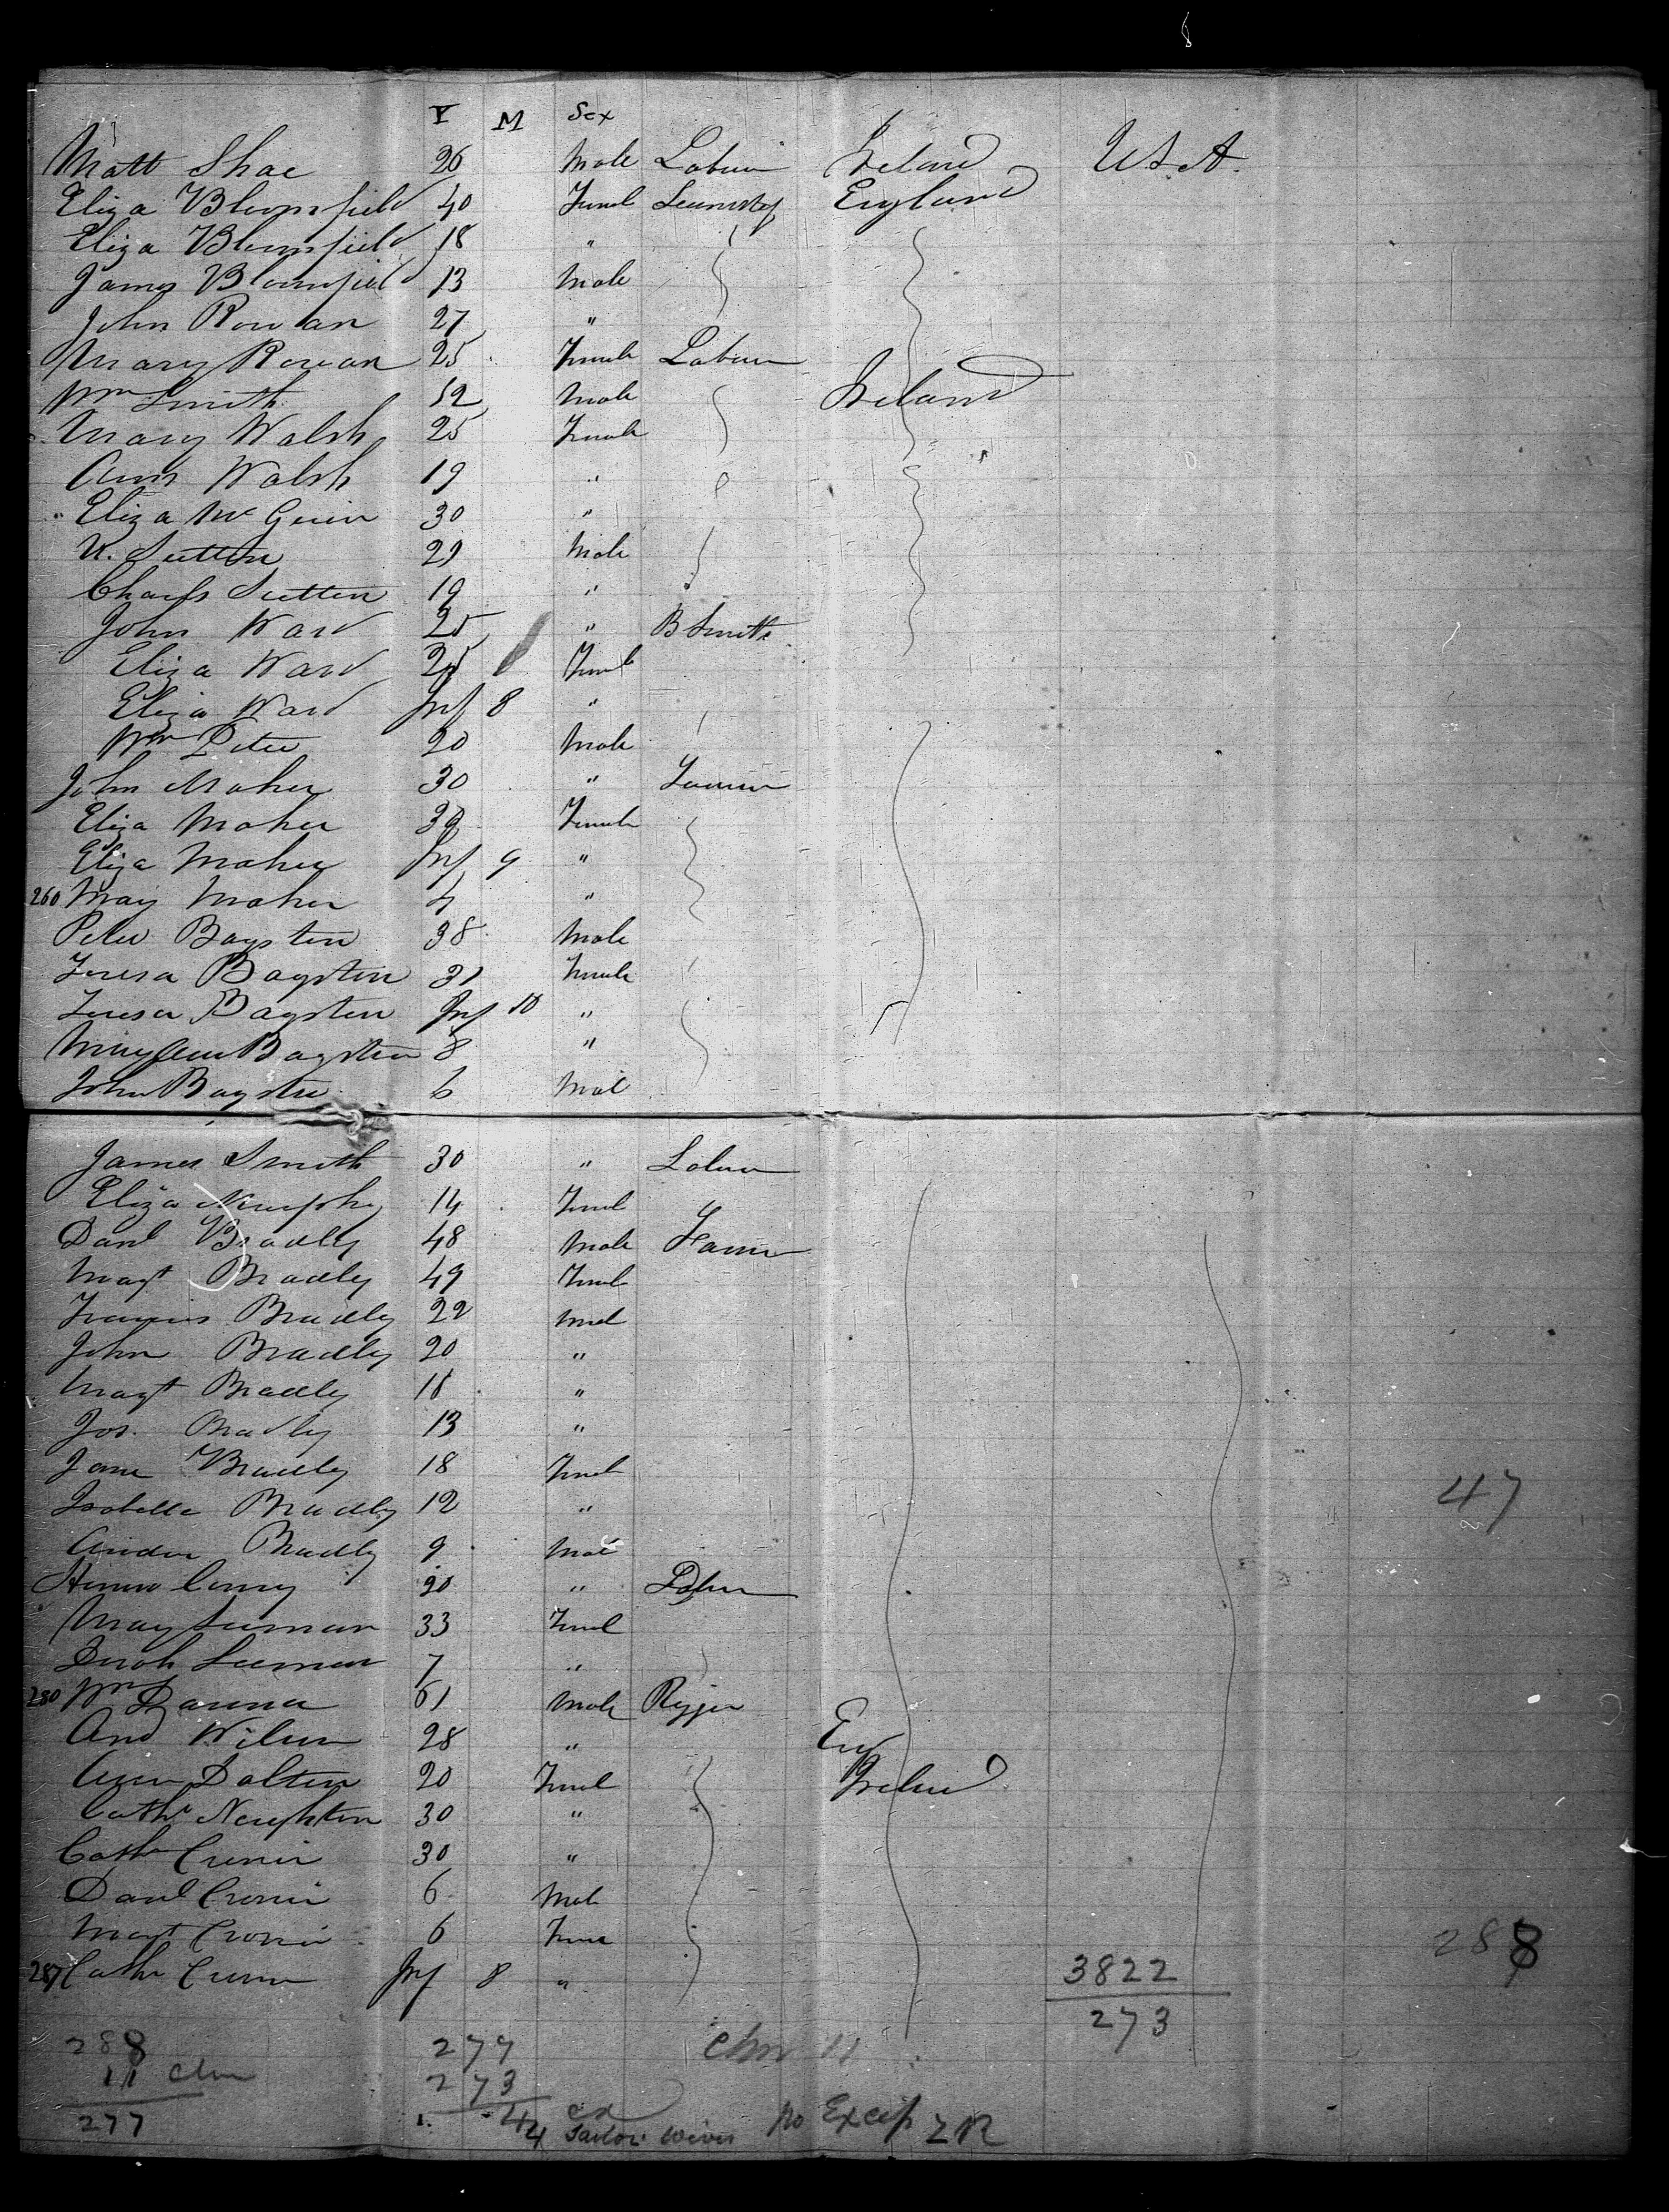 Y M Sex
Matt Shae 26 Male Labour Ireland U.S.A.
Eliza Bloomfield 40 Female England
Eliza Bloomfield 18 "
James Bloomfield 13 Male
John Rowan 27 "
Mary Rowan 25 Female Labour
Wm Smith 52 Male Ireland
Mary Walsh 25 Female
Ann Walsh 19 "
Eliza Mc 30 "
Sutton 29 Male
Charls Sutton 19 "
John Ward 25 " B Smith
Eliza Ward 25 Feml
Eliza Ward Inf 8 "
Wm Peter 20 Male
John Maher 30 "
Eliza Maher 30 Female
Eliza Maher Inf 9 "
260 Mary Maher 4 "
Peter Bagsten 38 Male
Teresa Bagsten 31 Female
Teresa Bagsten Inf 10 "
Mary Ann Bagsten 8 "
John Bagsten 6 Mal
James Smith 30 " Labour
Eliza Murphy 14 Feml
Danl Bradley 48 Male Farmer
Magt Bradley 49 Feml
Francis Bradley 22 Mal
John Bradley 20 "
Magt Bradley 16 "
Jos. Bradley 13 "
Jane Bradley 18 Feml
Isabella Bradley 12 " 47
Bradley 9 Mal
20 " Labour
Mary Leeman 33 Feml
Leeman 7 "
280 Wm 61 Male Rigger
And Wilson 28 " Eng
Ann Dalton 20 Feml Ireland
Cathe Naughton 30 "
Cath Cronin 30 "
Danl Cronin 6 Male
Magt Cronin 6 Feml 288
287 Cath Cronin Inf 8 " 3822
273
288 277 Chn 11
11 Chn 273
277 4 4 Sailors Wives no Excep